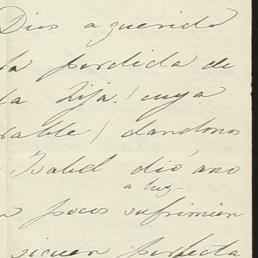 Dios a querido
la perdida de
ta hija! cuya
rable / dandonos
Isabel dió ano
a luz
n pocos sufrimien
siguen perfecta